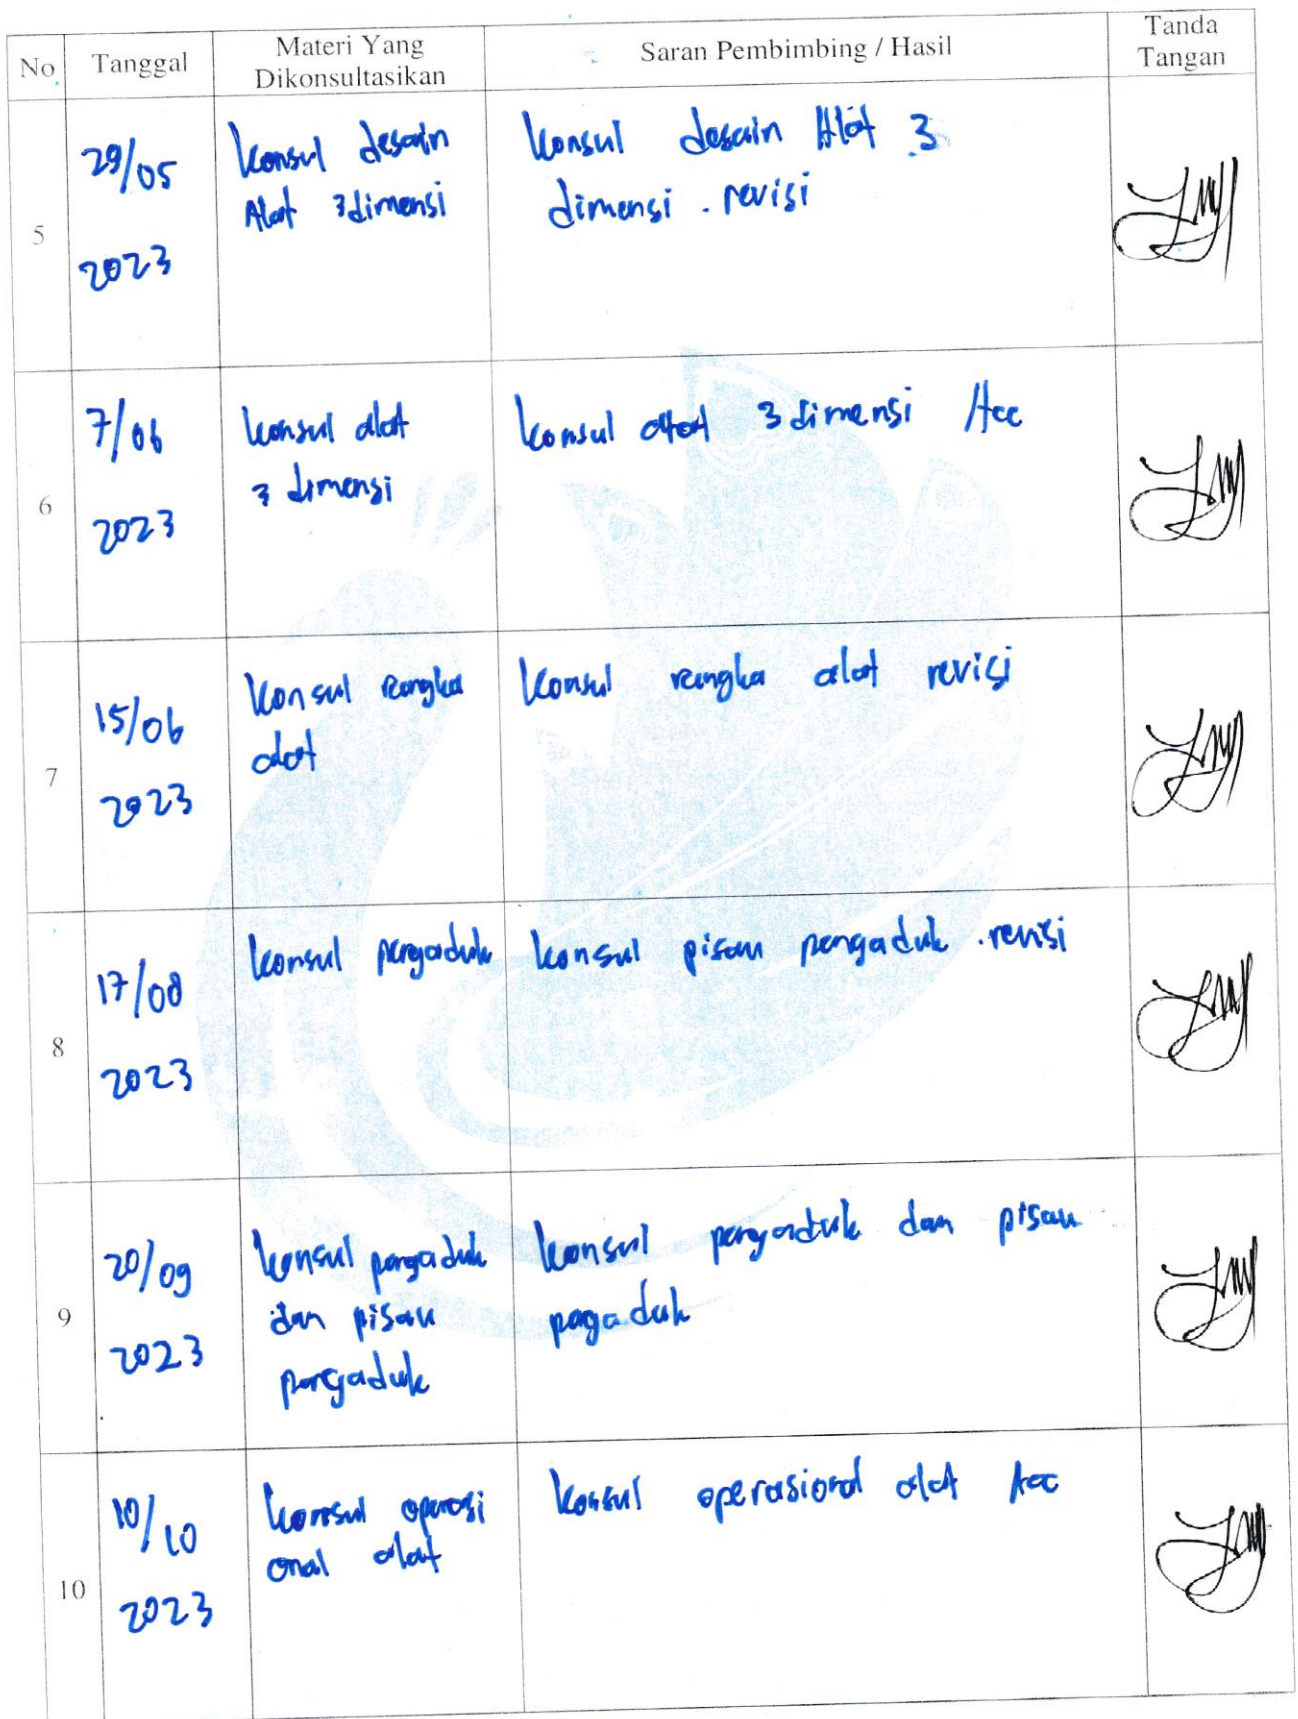 No Tanggal Materi Yang Dikonsultasikan Saran Pembimbing / Hasil Tanda Tangan
5
29/05
2023
Konsul desain
Alat 3dimensi
Konsul desain Alat 3
dimensi . revisi
6
7/06
2023
konsul alat
3 dimensi
konsul alat 3 dimensi Acc
7
15/06
2023
konsul rangka
alat
konsul rangka alat revisi
8
17/08
2023
konsul pengaduk
konsul pisau pengaduk . revisi
9
20/09
2023
konsul pengaduk
dan pisau
pengaduk
konsul pengaduk dan pisau
pagaduk
10
10/10
2023
konsul operasi
onal alat
konsul operasional alat Acc